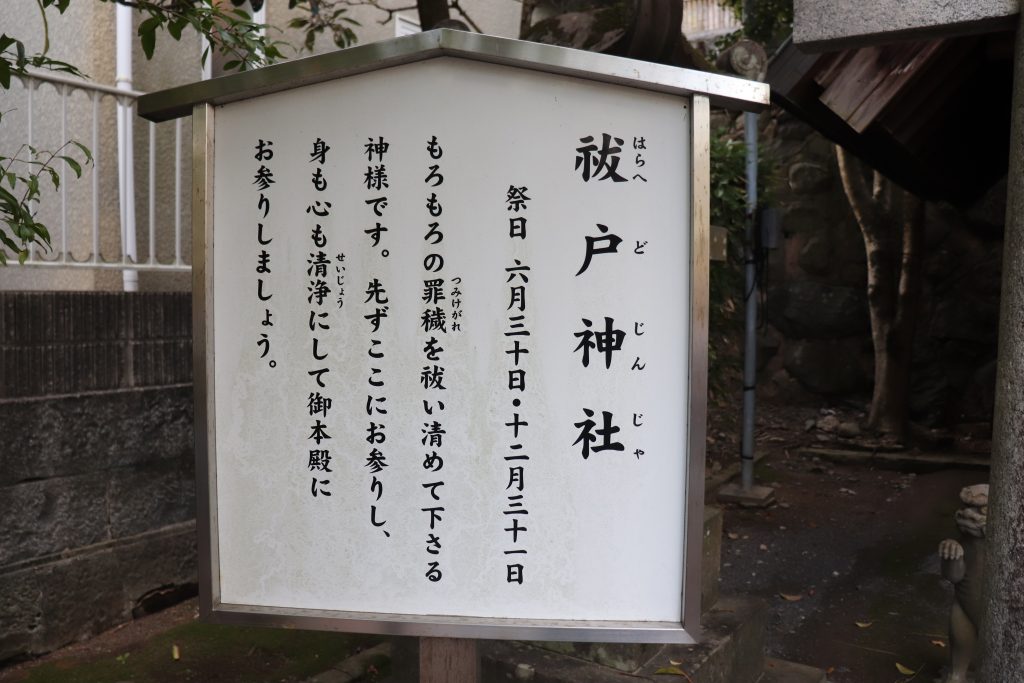 祓戸神社
はらへ ど じん じゃ
祭日 六月三十日・十二月三十一日
もろもろの罪穢を祓い清めて下さる
つみけがれ
神様です。先ずここにお参りし、
身も心も清浄にして御本殿に
せいじょう
お参りしましょう。